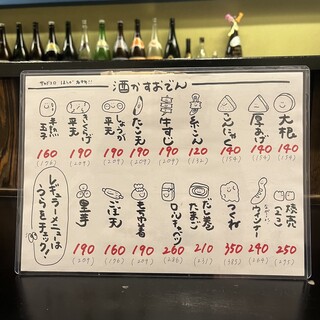 酒かすおでん
大根
140
(154)
厚あげ
140
(154)
こんにゃく
140
(154)
糸こん
120
(132)
牛すじ
190
(209)
たこ天
190
(209)
しょうが
平天
190
(209)
きくらげ
平天
190
(209)
半熟
玉子
160
(176)
焼売
(2コ)
250
(275)
ウインナー
240
(264)
つくね
350
(385)
だし巻
たまご
210
(231)
ロールキャベツ
260
(286)
もち巾着
190
(209)
ごぼ天
160
(176)
里芋
190
(209)
レギュラーメニューは
うらをチェック!